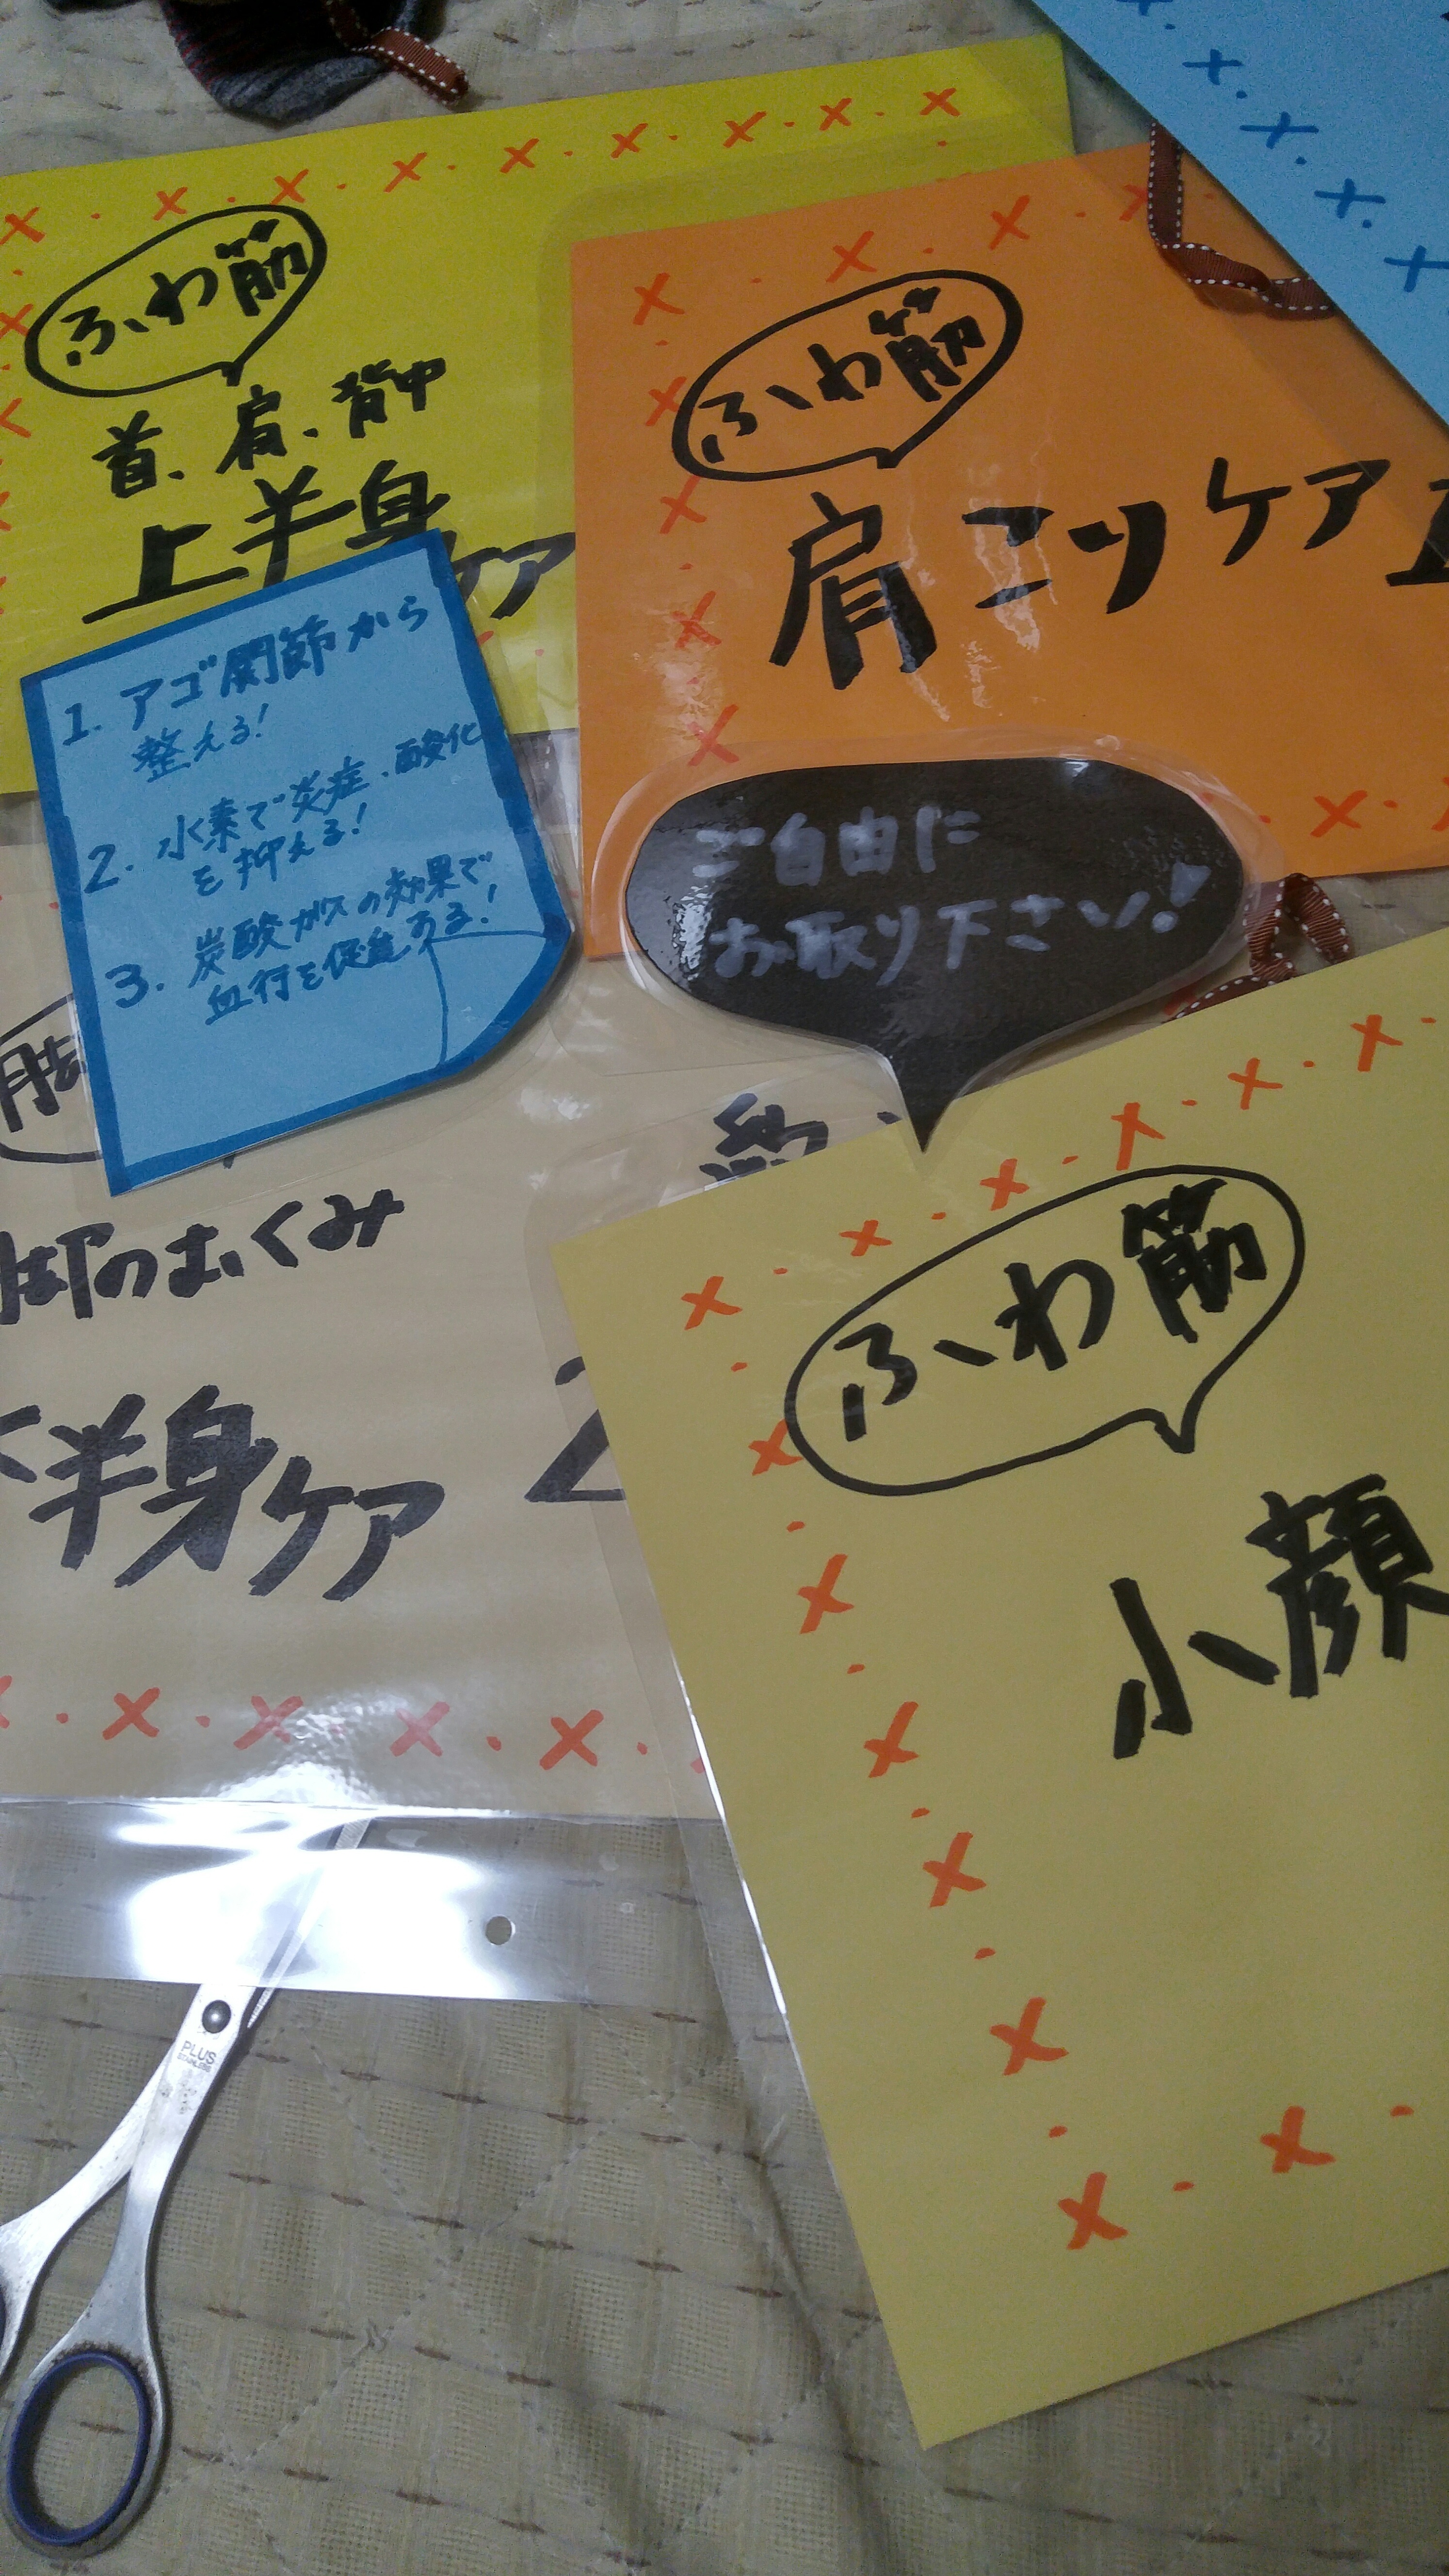 ふわ筋
首、肩、背中
上半身ケア
ふわ筋
肩こりケア
1. アゴ関節から
整える!
2. 水素で炎症、酸化
を抑える!
3. 炭酸ガスの効果で
血行を促進ある!
ご自由に
お取り下さい!
脚のむくみ
半身ケア
2
ふわ筋
小顔
PLUS
STAINLESS